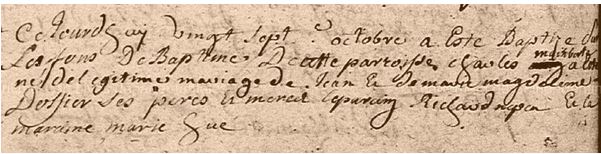 Ce Jourdhuy vingt sept octobre a Este Baptize sur
Les fons De Baptme De cette parroisse charles
nes del egitime mariage de Jean Et de marie magdelaine
Dossier Ses peres Et meres Le parain Richard Et la
maraine marie hue